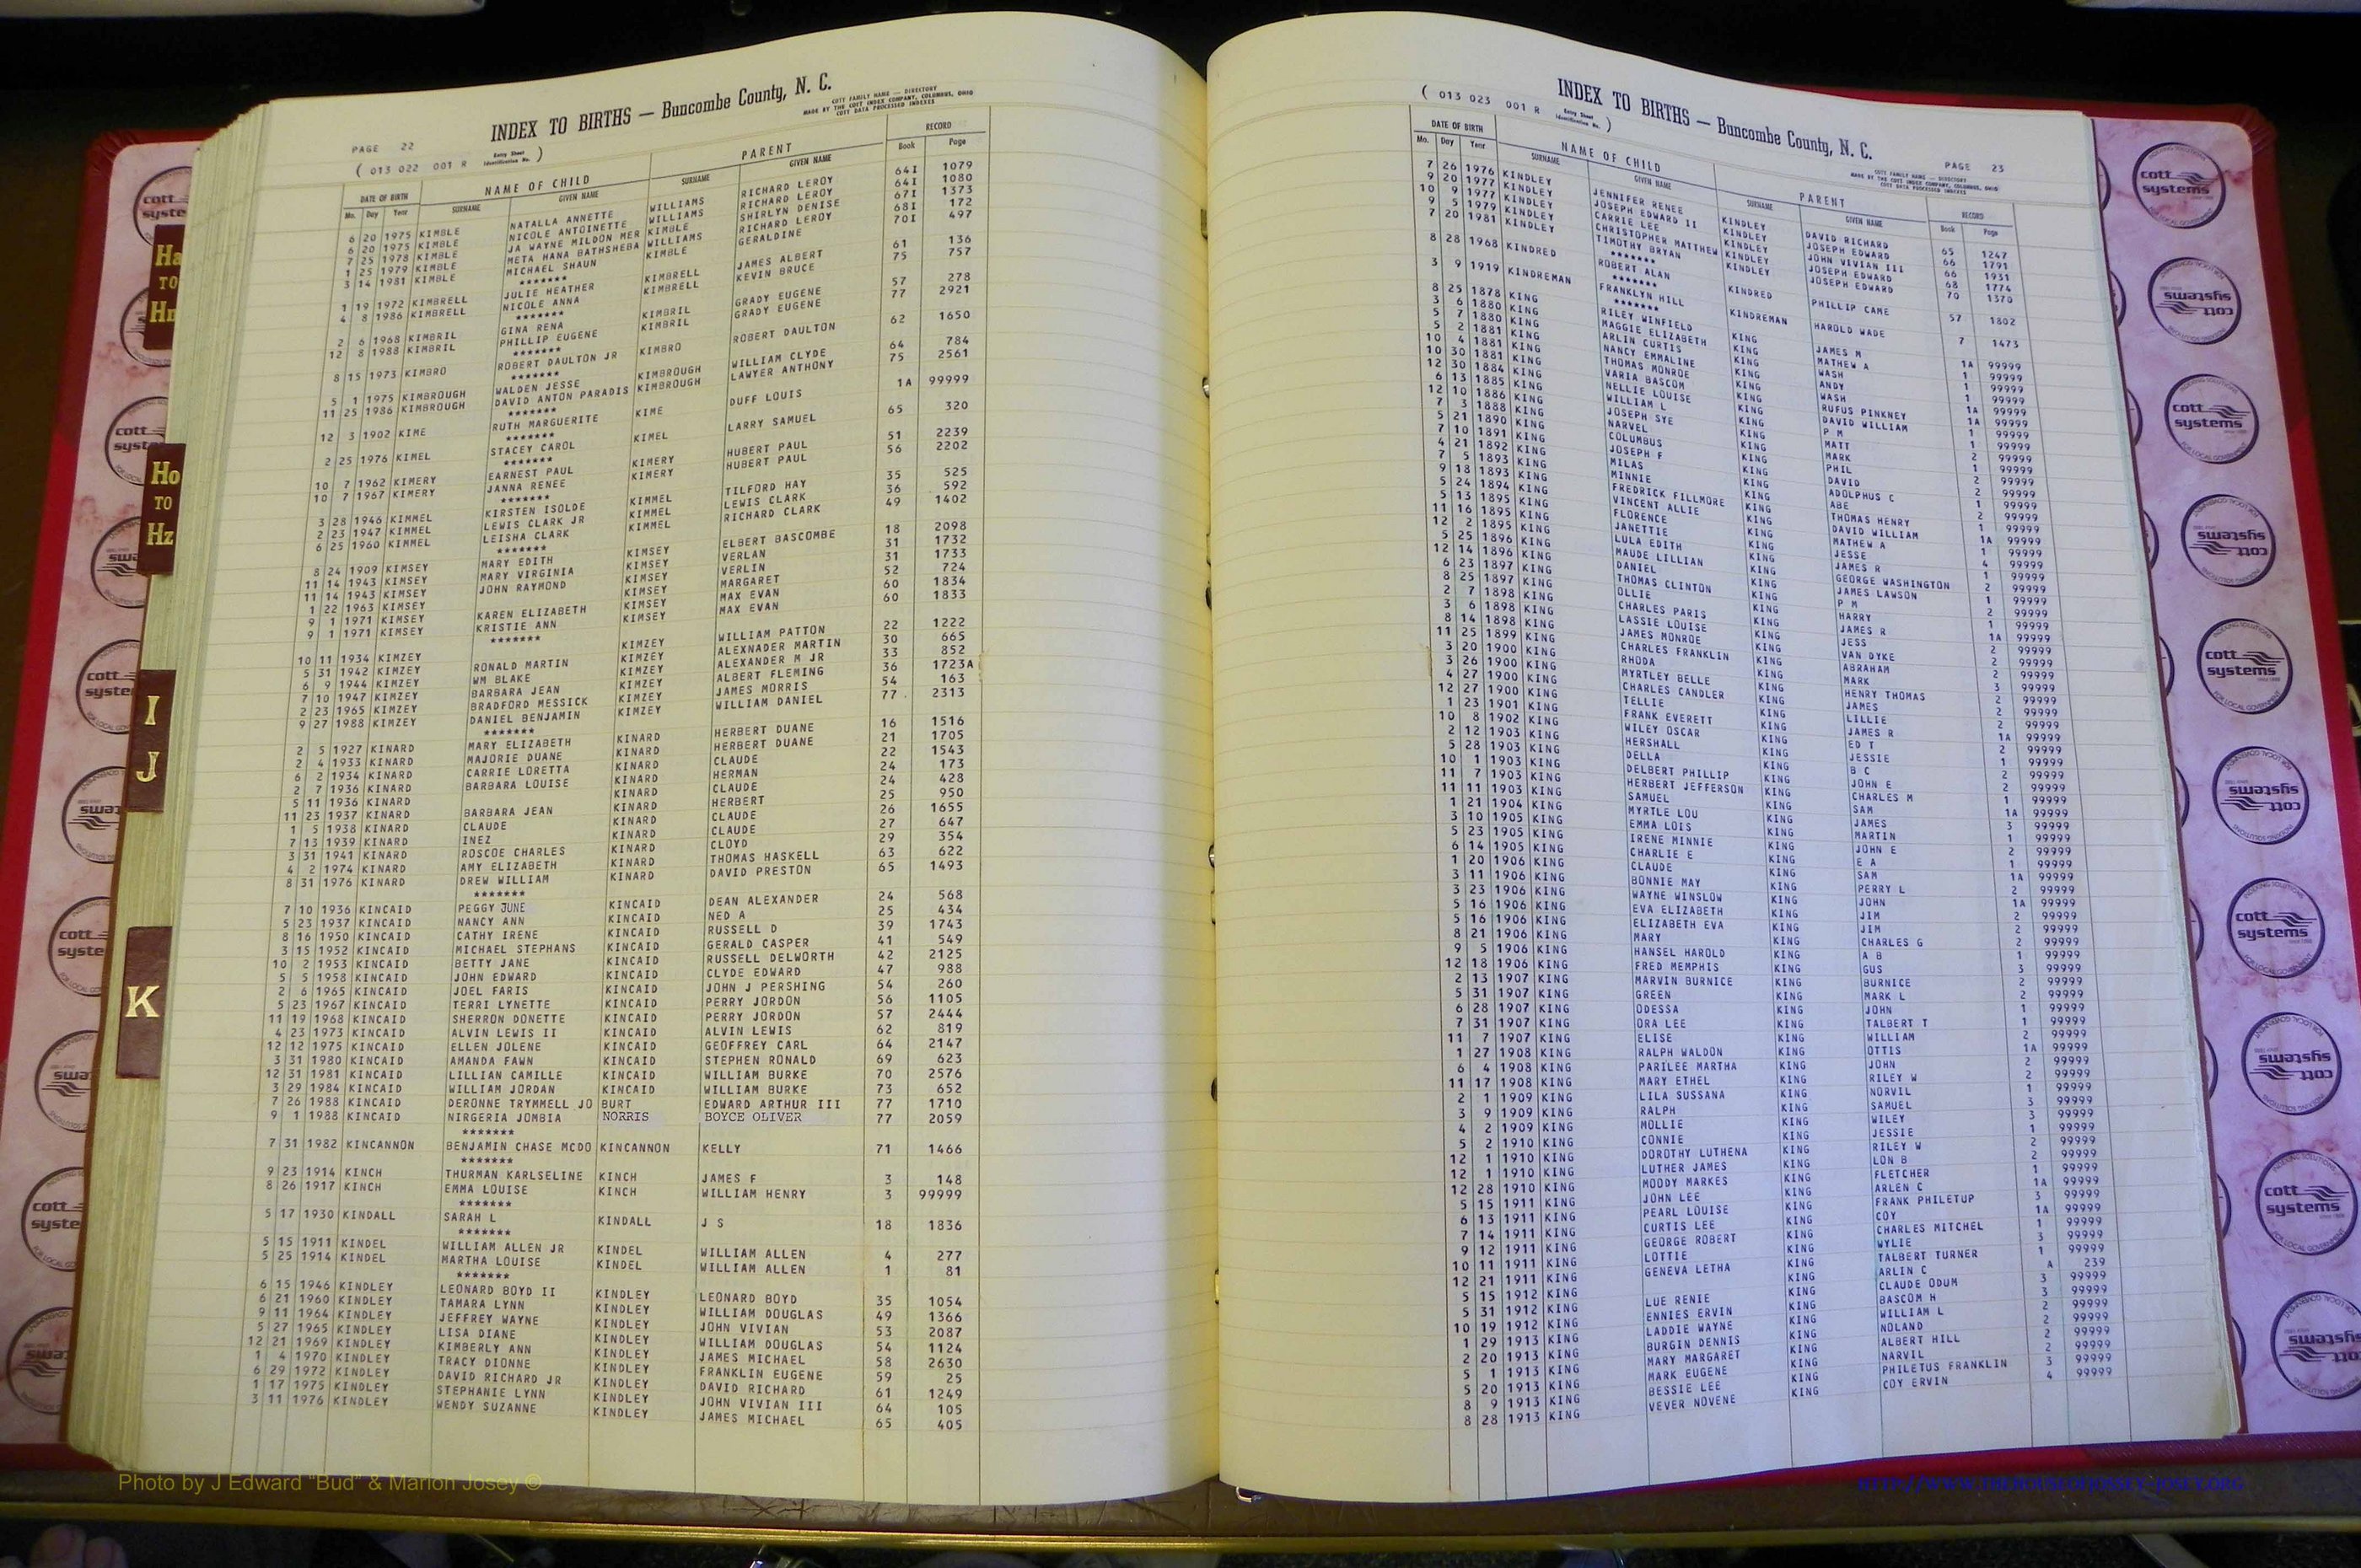 PAGE 22
INDEX TO BIRTHS — Buncombe County, N. C.
COTT FAMILY NAME — DIRECTORY
MADE BY THE COTT INDEX COMPANY, COLUMBUS, OHIO
COTT DATA PROCESSED INDEXES
( 013 022 001 R Entry Sheet Identification No. )
DATE OF BIRTH NAME OF CHILD PARENT RECORD
Mo. Day Year SURNAME GIVEN NAME SURNAME GIVEN NAME Book Page
6 20 1975 KIMBLE NATALLA ANNETTE WILLIAMS RICHARD LEROY 64I 1079
6 20 1975 KIMBLE NICOLE ANTOINETTE WILLIAMS RICHARD LEROY 64I 1080
7 25 1978 KIMBLE JA WAYNE MILDON MER KIMBLE SHIRLYN DENISE 67I 1373
1 25 1979 KIMBLE META HANA BATHSHEBA WILLIAMS RICHARD LEROY 68I 172
3 14 1981 KIMBLE MICHAEL SHAUN KIMBLE GERALDINE 70I 497
*******
1 19 1972 KIMBRELL JULIE HEATHER KIMBRELL JAMES ALBERT 61 136
4 8 1986 KIMBRELL NICOLE ANNA KIMBRELL KEVIN BRUCE 75 757
*******
2 6 1968 KIMBRIL GINA RENA KIMBRIL GRADY EUGENE 57 278
12 8 1988 KIMBRIL PHILLIP EUGENE KIMBRIL GRADY EUGENE 77 2921
*******
8 15 1973 KIMBRO ROBERT DAULTON JR KIMBRO ROBERT DAULTON 62 1650
*******
5 1 1975 KIMBROUGH WALDEN JESSE KIMBROUGH WILLIAM CLYDE 64 784
11 25 1986 KIMBROUGH DAVID ANTON PARADIS KIMBROUGH LAWYER ANTHONY 75 2561
*******
12 3 1902 KIME RUTH MARGUERITE KIME DUFF LOUIS 1A 99999
*******
2 25 1976 KIMEL STACEY CAROL KIMEL LARRY SAMUEL 65 320
*******
10 7 1962 KIMERY EARNEST PAUL KIMERY HUBERT PAUL 51 2239
10 7 1967 KIMERY JANNA RENEE KIMERY HUBERT PAUL 56 2202
*******
3 28 1946 KIMMEL KIRSTEN ISOLDE KIMMEL TILFORD HAY 35 525
2 23 1947 KIMMEL LEWIS CLARK JR KIMMEL LEWIS CLARK 36 592
6 25 1960 KIMMEL LEISHA CLARK KIMMEL RICHARD CLARK 49 1402
*******
8 24 1909 KIMSEY MARY EDITH KIMSEY ELBERT BASCOMBE 18 2098
11 14 1943 KIMSEY MARY VIRGINIA KIMSEY VERLAN 31 1732
11 14 1943 KIMSEY JOHN RAYMOND KIMSEY VERLIN 31 1733
1 22 1963 KIMSEY KIMSEY MARGARET 52 724
9 1 1971 KIMSEY KAREN ELIZABETH KIMSEY MAX EVAN 60 1834
9 1 1971 KIMSEY KRISTIE ANN KIMSEY MAX EVAN 60 1833
*******
10 11 1934 KIMZEY KIMZEY WILLIAM PATTON 22 1222
5 31 1942 KIMZEY RONALD MARTIN KIMZEY ALEXNADER MARTIN 30 665
6 9 1944 KIMZEY WM BLAKE KIMZEY ALEXANDER M JR 33 852
7 10 1947 KIMZEY BARBARA JEAN KIMZEY ALBERT FLEMING 36 1723A
2 23 1965 KIMZEY BRADFORD MESSICK KIMZEY JAMES MORRIS 54 163
9 27 1988 KIMZEY DANIEL BENJAMIN KIMZEY WILLIAM DANIEL 77 2313
*******
2 5 1927 KINARD MARY ELIZABETH KINARD HERBERT DUANE 16 1516
2 4 1933 KINARD MAJORIE DUANE KINARD HERBERT DUANE 21 1705
6 2 1934 KINARD CARRIE LORETTA KINARD CLAUDE 22 1543
2 7 1936 KINARD BARBARA LOUISE KINARD HERMAN 24 173
5 11 1936 KINARD KINARD CLAUDE 24 428
11 23 1937 KINARD BARBARA JEAN KINARD HERBERT 25 950
1 5 1938 KINARD CLAUDE KINARD CLAUDE 26 1655
7 13 1939 KINARD INEZ KINARD CLAUDE 27 647
3 31 1941 KINARD ROSCOE CHARLES KINARD CLOYD 29 354
4 2 1974 KINARD AMY ELIZABETH KINARD THOMAS HASKELL 63 622
8 31 1976 KINARD DREW WILLIAM KINARD DAVID PRESTON 65 1493
*******
7 10 1936 KINCAID PEGGY JUNE KINCAID DEAN ALEXANDER 24 568
5 23 1937 KINCAID NANCY ANN KINCAID NED A 25 434
8 16 1950 KINCAID CATHY IRENE KINCAID RUSSELL D 39 1743
3 15 1952 KINCAID MICHAEL STEPHANS KINCAID GERALD CASPER 41 549
10 2 1953 KINCAID BETTY JANE KINCAID RUSSELL DELWORTH 42 2125
5 5 1958 KINCAID JOHN EDWARD KINCAID CLYDE EDWARD 47 988
2 6 1965 KINCAID JOEL FARIS KINCAID JOHN J PERSHING 54 260
5 23 1967 KINCAID TERRI LYNETTE KINCAID PERRY JORDON 56 1105
11 19 1968 KINCAID SHERRON DONETTE KINCAID PERRY JORDON 57 2444
4 23 1973 KINCAID ALVIN LEWIS II KINCAID ALVIN LEWIS 62 819
12 12 1975 KINCAID ELLEN JOLENE KINCAID GEOFFREY CARL 64 2147
3 31 1980 KINCAID AMANDA FAWN KINCAID STEPHEN RONALD 69 623
12 31 1981 KINCAID LILLIAN CAMILLE KINCAID WILLIAM BURKE 70 2576
3 29 1984 KINCAID WILLIAM JORDAN KINCAID WILLIAM BURKE 73 652
7 26 1988 KINCAID DERONNE TRYMMELL JO BURT EDWARD ARTHUR III 77 1710
9 1 1988 KINCAID NIRGERIA JOMBIA NORRIS BOYCE OLIVER 77 2059
*******
7 31 1982 KINCANNON BENJAMIN CHASE MCDO KINCANNON KELLY 71 1466
*******
9 23 1914 KINCH THURMAN KARLSELINE KINCH JAMES F 3 148
8 26 1917 KINCH EMMA LOUISE KINCH WILLIAM HENRY 3 99999
*******
5 17 1930 KINDALL SARAH L KINDALL J S 18 1836
*******
5 15 1911 KINDEL WILLIAM ALLEN JR KINDEL WILLIAM ALLEN 4 277
5 25 1914 KINDEL MARTHA LOUISE KINDEL WILLIAM ALLEN 1 81
*******
6 15 1946 KINDLEY LEONARD BOYD II KINDLEY LEONARD BOYD 35 1054
6 21 1960 KINDLEY TAMARA LYNN KINDLEY WILLIAM DOUGLAS 49 1366
9 11 1964 KINDLEY JEFFREY WAYNE KINDLEY JOHN VIVIAN 53 2087
5 27 1965 KINDLEY LISA DIANE KINDLEY WILLIAM DOUGLAS 54 1124
12 21 1969 KINDLEY KIMBERLY ANN KINDLEY JAMES MICHAEL 58 2630
1 4 1970 KINDLEY TRACY DIONNE KINDLEY FRANKLIN EUGENE 59 25
6 29 1972 KINDLEY DAVID RICHARD JR KINDLEY DAVID RICHARD 61 1249
1 17 1975 KINDLEY STEPHANIE LYNN KINDLEY JOHN VIVIAN III 64 105
3 11 1976 KINDLEY WENDY SUZANNE KINDLEY JAMES MICHAEL 65 405
( 013 023 001 R Entry Sheet Identification No. )
INDEX TO BIRTHS — Buncombe County, N. C.
PAGE 23
COTT FAMILY NAME — DIRECTORY
MADE BY THE COTT INDEX COMPANY, COLUMBUS, OHIO
COTT DATA PROCESSED INDEXES
DATE OF BIRTH NAME OF CHILD PARENT RECORD
Mo. Day Year SURNAME GIVEN NAME SURNAME GIVEN NAME Book Page
7 26 1976 KINDLEY JENNIFER RENEE KINDLEY DAVID RICHARD 65 1247
9 20 1977 KINDLEY JOSEPH EDWARD II KINDLEY JOSEPH EDWARD 66 1791
10 9 1977 KINDLEY CARRIE LEE KINDLEY JOHN VIVIAN III 66 1931
9 5 1979 KINDLEY CHRISTOPHER MATTHEW KINDLEY JOSEPH EDWARD 68 1774
7 20 1981 KINDLEY TIMOTHY BRYAN KINDLEY JOSEPH EDWARD 70 1370
*******
8 28 1968 KINDRED ROBERT ALAN KINDRED PHILLIP CAME 57 1802
*******
3 9 1919 KINDREMAN FRANKLYN HILL KINDREMAN HAROLD WADE 7 1473
******
8 25 1878 KING RILEY WINFIELD KING JAMES M 1A 99999
3 6 1880 KING MAGGIE ELIZABETH KING MATHEW A 1 99999
5 7 1880 KING ARLIN CURTIS KING WASH 1 99999
5 2 1881 KING NANCY EMMALINE KING ANDY 1 99999
10 4 1881 KING THOMAS MONROE KING WASH 1A 99999
10 30 1881 KING VARIA BASCOM KING RUFUS PINKNEY 1A 99999
12 30 1884 KING NELLIE LOUISE KING DAVID WILLIAM 1 99999
6 13 1885 KING WILLIAM L KING P M 1 99999
12 10 1886 KING JOSEPH SYE KING MATT 2 99999
7 3 1888 KING NARVEL KING MARK 1 99999
5 21 1890 KING COLUMBUS KING PHIL 2 99999
7 10 1891 KING JOSEPH F KING DAVID 2 99999
4 21 1892 KING MILAS KING ADOLPHUS C 1 99999
7 5 1893 KING MINNIE KING ABE 2 99999
9 18 1893 KING FREDRICK FILLMORE KING THOMAS HENRY 1 99999
5 24 1894 KING VINCENT ALLIE KING DAVID WILLIAM 1A 99999
5 13 1895 KING FLORENCE KING MATHEW A 1 99999
11 16 1895 KING JANETTIE KING JESSE 4 99999
12 2 1895 KING LULA EDITH KING JAMES R 1 99999
5 25 1896 KING MAUDE LILLIAN KING GEORGE WASHINGTON 2 99999
12 14 1896 KING DANIEL KING JAMES LAWSON 1 99999
6 23 1897 KING THOMAS CLINTON KING P M 2 99999
8 25 1897 KING OLLIE KING HARRY 1 99999
2 7 1898 KING CHARLES PARIS KING JAMES R 1A 99999
3 6 1898 KING LASSIE LOUISE KING JESS 2 99999
8 14 1898 KING JAMES MONROE KING VAN DYKE 2 99999
11 25 1899 KING CHARLES FRANKLIN KING ABRAHAM 2 99999
3 20 1900 KING RHODA KING MARK 3 99999
3 26 1900 KING MYRTLEY BELLE KING HENRY THOMAS 2 99999
4 27 1900 KING CHARLES CANDLER KING JAMES 2 99999
12 27 1900 KING TELLIE KING LILLIE 2 99999
1 23 1901 KING FRANK EVERETT KING JAMES R 1A 99999
10 8 1902 KING WILEY OSCAR KING ED T 2 99999
2 12 1903 KING HERSHALL KING JESSIE 1 99999
5 28 1903 KING DELLA KING B C 2 99999
10 1 1903 KING DELBERT PHILLIP KING JOHN E 2 99999
11 7 1903 KING HERBERT JEFFERSON KING CHARLES M 1 99999
11 11 1903 KING SAMUEL KING SAM 1A 99999
1 21 1904 KING MYRTLE LOU KING JAMES 3 99999
3 10 1905 KING EMMA LOIS KING MARTIN 1 99999
5 23 1905 KING IRENE MINNIE KING JOHN E 2 99999
6 14 1905 KING CHARLIE E KING E A 1 99999
1 20 1906 KING CLAUDE KING SAM 1A 99999
3 11 1906 KING BONNIE MAY KING PERRY L 2 99999
3 23 1906 KING WAYNE WINSLOW KING JOHN 1A 99999
5 16 1906 KING EVA ELIZABETH KING JIM 2 99999
5 16 1906 KING ELIZABETH EVA KING JIM 2 99999
8 21 1906 KING MARY KING CHARLES G 2 99999
9 5 1906 KING HANSEL HAROLD KING A B 1 99999
12 18 1906 KING FRED MEMPHIS KING GUS 3 99999
2 13 1907 KING MARVIN BURNICE KING BURNICE 2 99999
5 31 1907 KING GREEN KING MARK L 2 99999
6 28 1907 KING ODESSA KING JOHN 1 99999
7 31 1907 KING ORA LEE KING TALBERT T 1 99999
11 7 1907 KING ELISE KING WILLIAM 2 99999
1 27 1908 KING RALPH WALDON KING OTTIS 1A 99999
6 4 1908 KING PARILEE MARTHA KING JOHN 2 99999
11 17 1908 KING MARY ETHEL KING RILEY W 2 99999
2 1 1909 KING LILA SUSSANA KING NORVIL 1 99999
3 9 1909 KING RALPH KING SAMUEL 3 99999
4 2 1909 KING MOLLIE KING WILEY 3 99999
5 2 1910 KING CONNIE KING JESSIE 1 99999
12 1 1910 KING DOROTHY LUTHENA KING RILEY W 2 99999
12 1 1910 KING LUTHER JAMES KING LON B 2 99999
12 28 1910 KING MOODY MARKES KING FLETCHER 1 99999
5 15 1911 KING JOHN LEE KING ARLEN C 1A 99999
6 13 1911 KING PEARL LOUISE KING FRANK PHILETUP 3 99999
7 14 1911 KING CURTIS LEE KING COY 1A 99999
9 12 1911 KING GEORGE ROBERT KING CHARLES MITCHEL 1 99999
10 11 1911 KING LOTTIE KING WYLIE 3 99999
12 21 1911 KING GENEVA LETHA KING TALBERT TURNER 1 99999
5 15 1912 KING KING ARLIN C A 239
5 31 1912 KING LUE RENIE KING CLAUDE ODUM 3 99999
10 19 1912 KING ENNIES ERVIN KING BASCOM H 3 99999
1 29 1913 KING LADDIE WAYNE KING WILLIAM L 2 99999
2 20 1913 KING BURGIN DENNIS KING NOLAND 2 99999
5 1 1913 KING MARY MARGARET KING ALBERT HILL 2 99999
5 20 1913 KING MARK EUGENE KING NARVIL 2 99999
8 9 1913 KING BESSIE LEE KING PHILETUS FRANKLIN 3 99999
8 28 1913 KING VEVER NOVENE KING COY ERVIN 4 99999
Ha TO Hn
Ho TO Hz
I J
K
cott systems
Photo by J Edward "Bud" & Marion Josey ©
HTTP://WWW.THEHOUSEOFJOSSEY-JOSEY.ORG